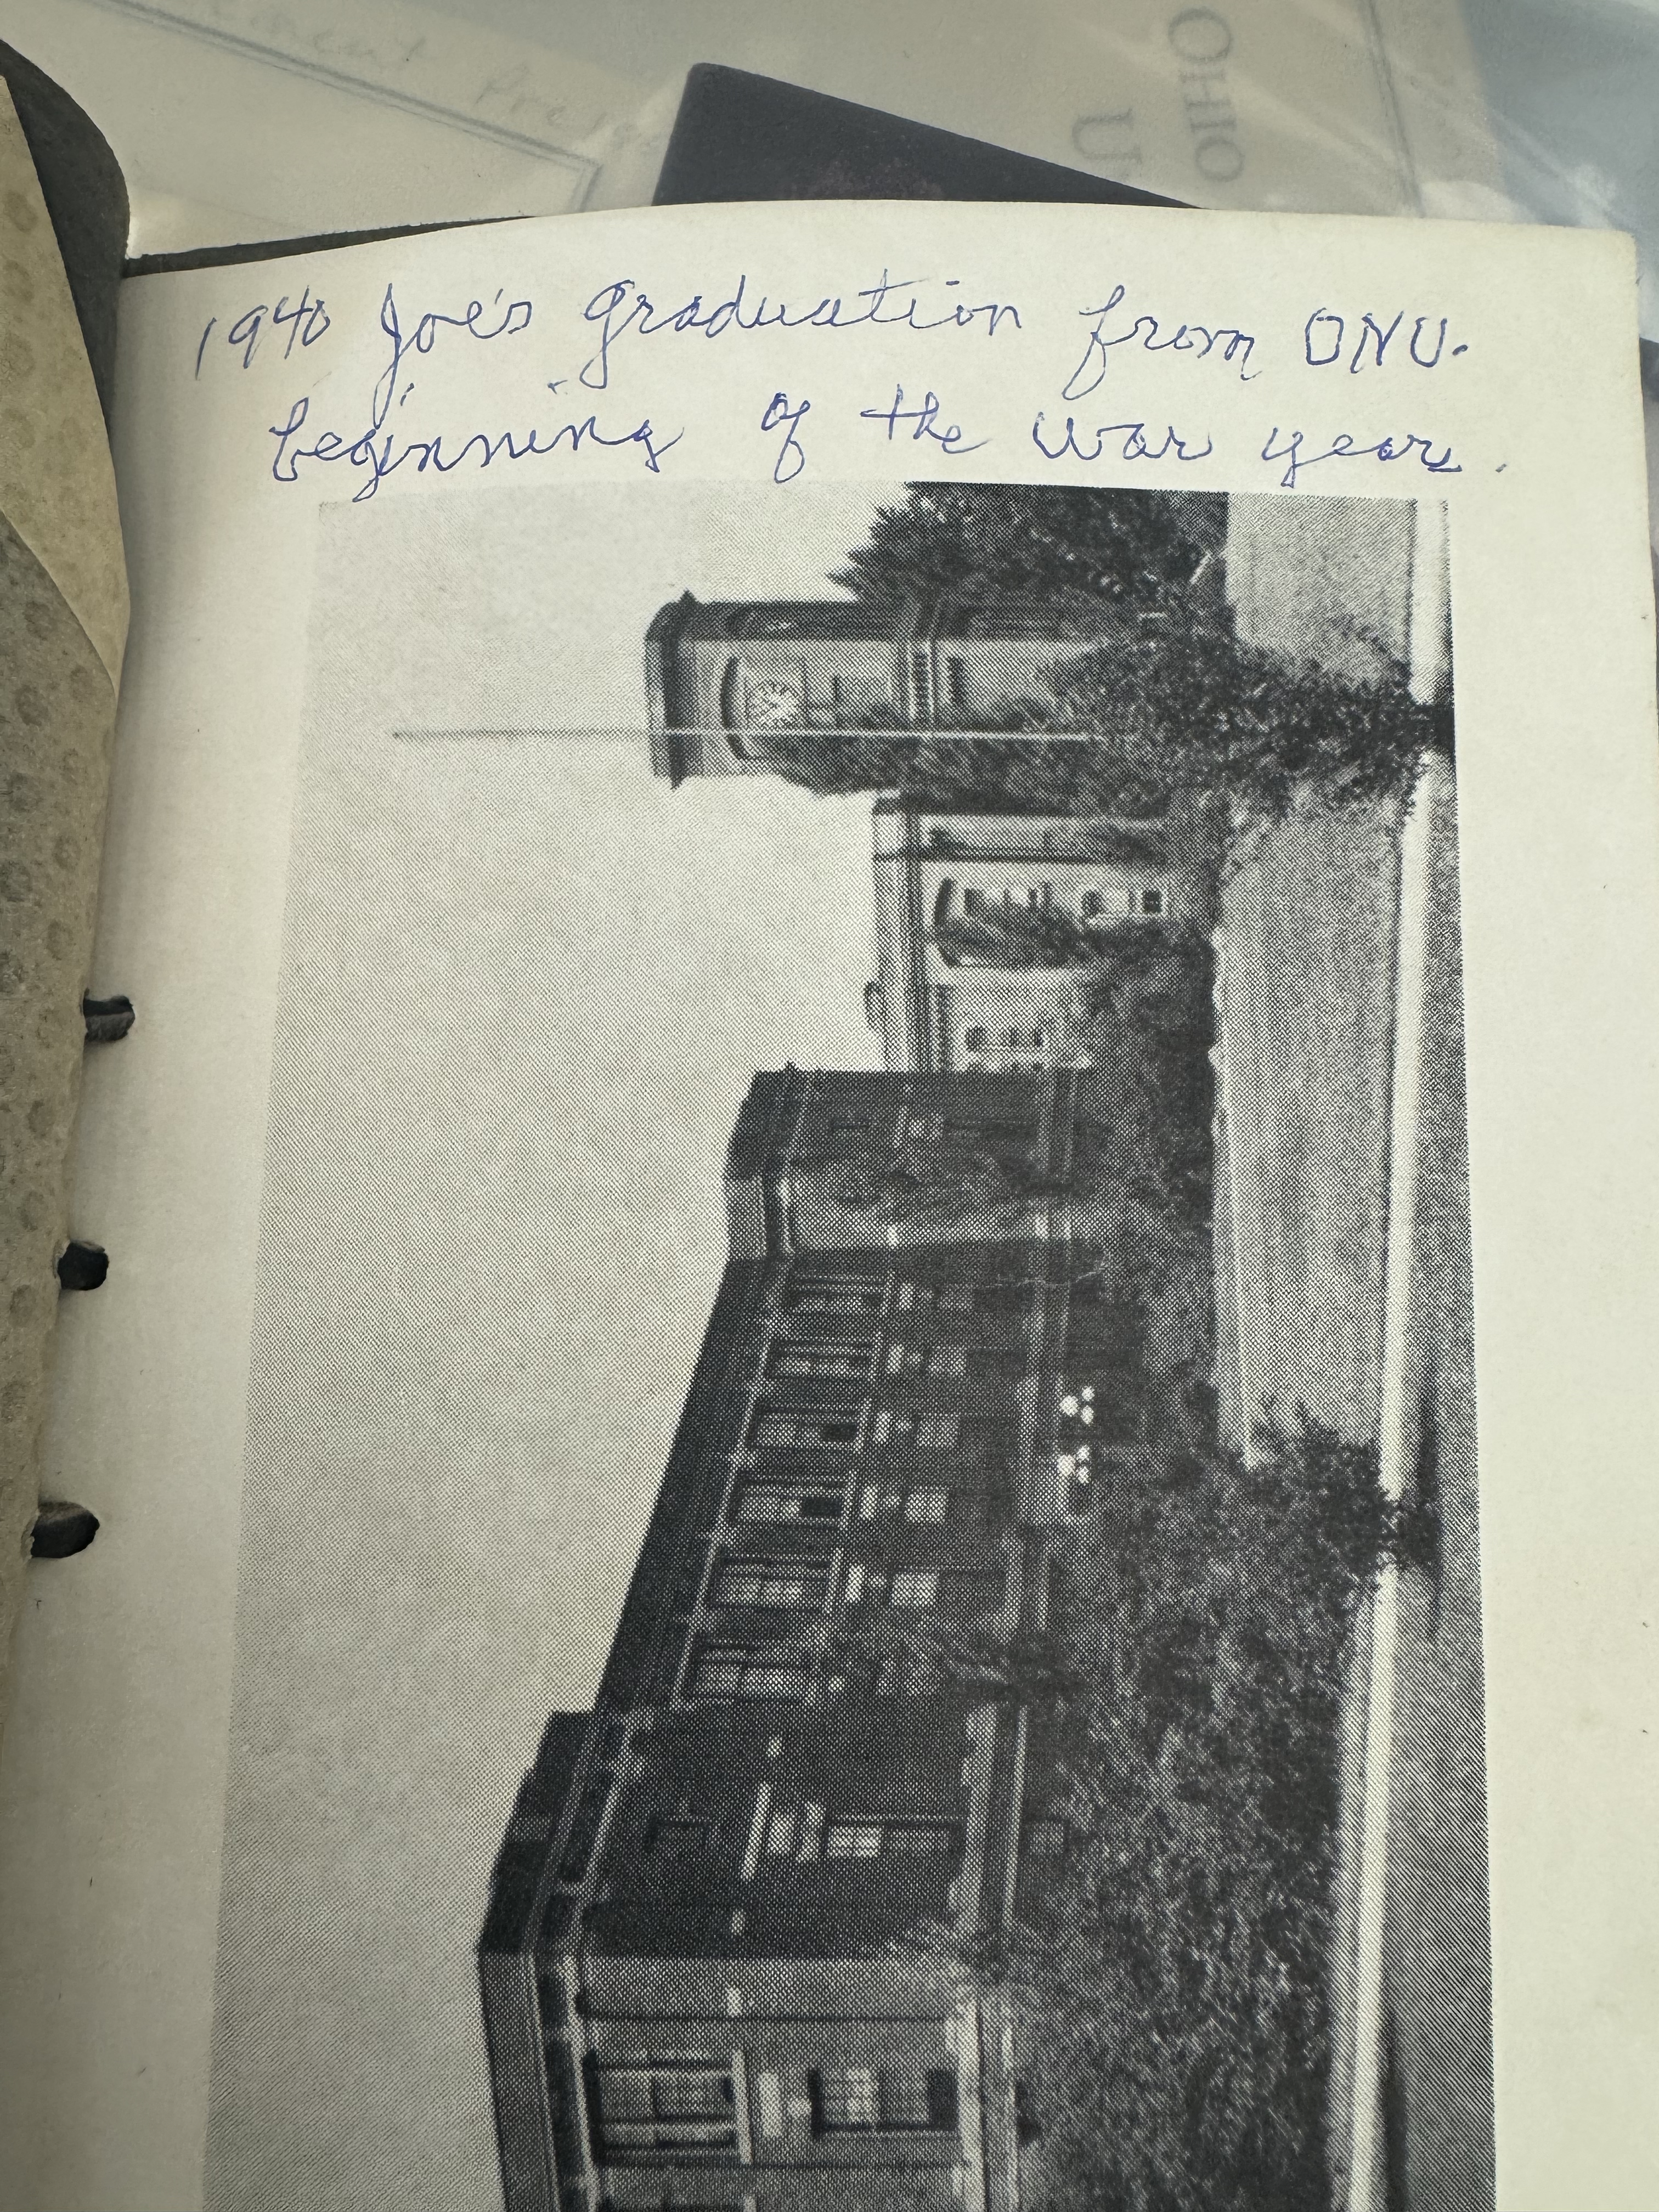 1940 Joe's graduation from ONU.
beginning of the war years.
OHIO
U